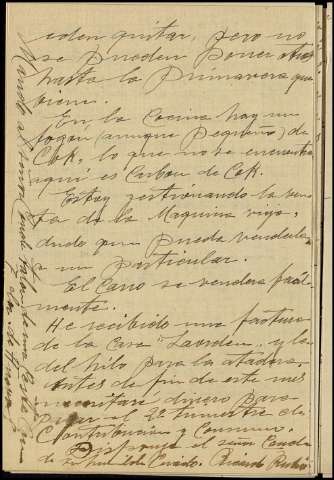 eden quitar, pero no
se pueden poner otros
hasta la Primavera que
biene.
En la cocina hay un
fogón (aunque pequeño) de
Cok, lo que no se encuentra
aquí es Carbon de Cok.
Estoy gestionando la ven
ta de la Maquina vieja,
dudo que pueda venderla
a un particular.
El Carro se venderá facil
mente.
He recibido una factura
de la Casa "Laorden" y la
del hilo para la atadora.
Antes de fin de este mes
necesitare dinero para
pagar el 2º trimestre de
Contribucion y Consumo.
Disponga el señor Conde
de su humilde Criado. Ricardo Rubio
Mando al señor Conde